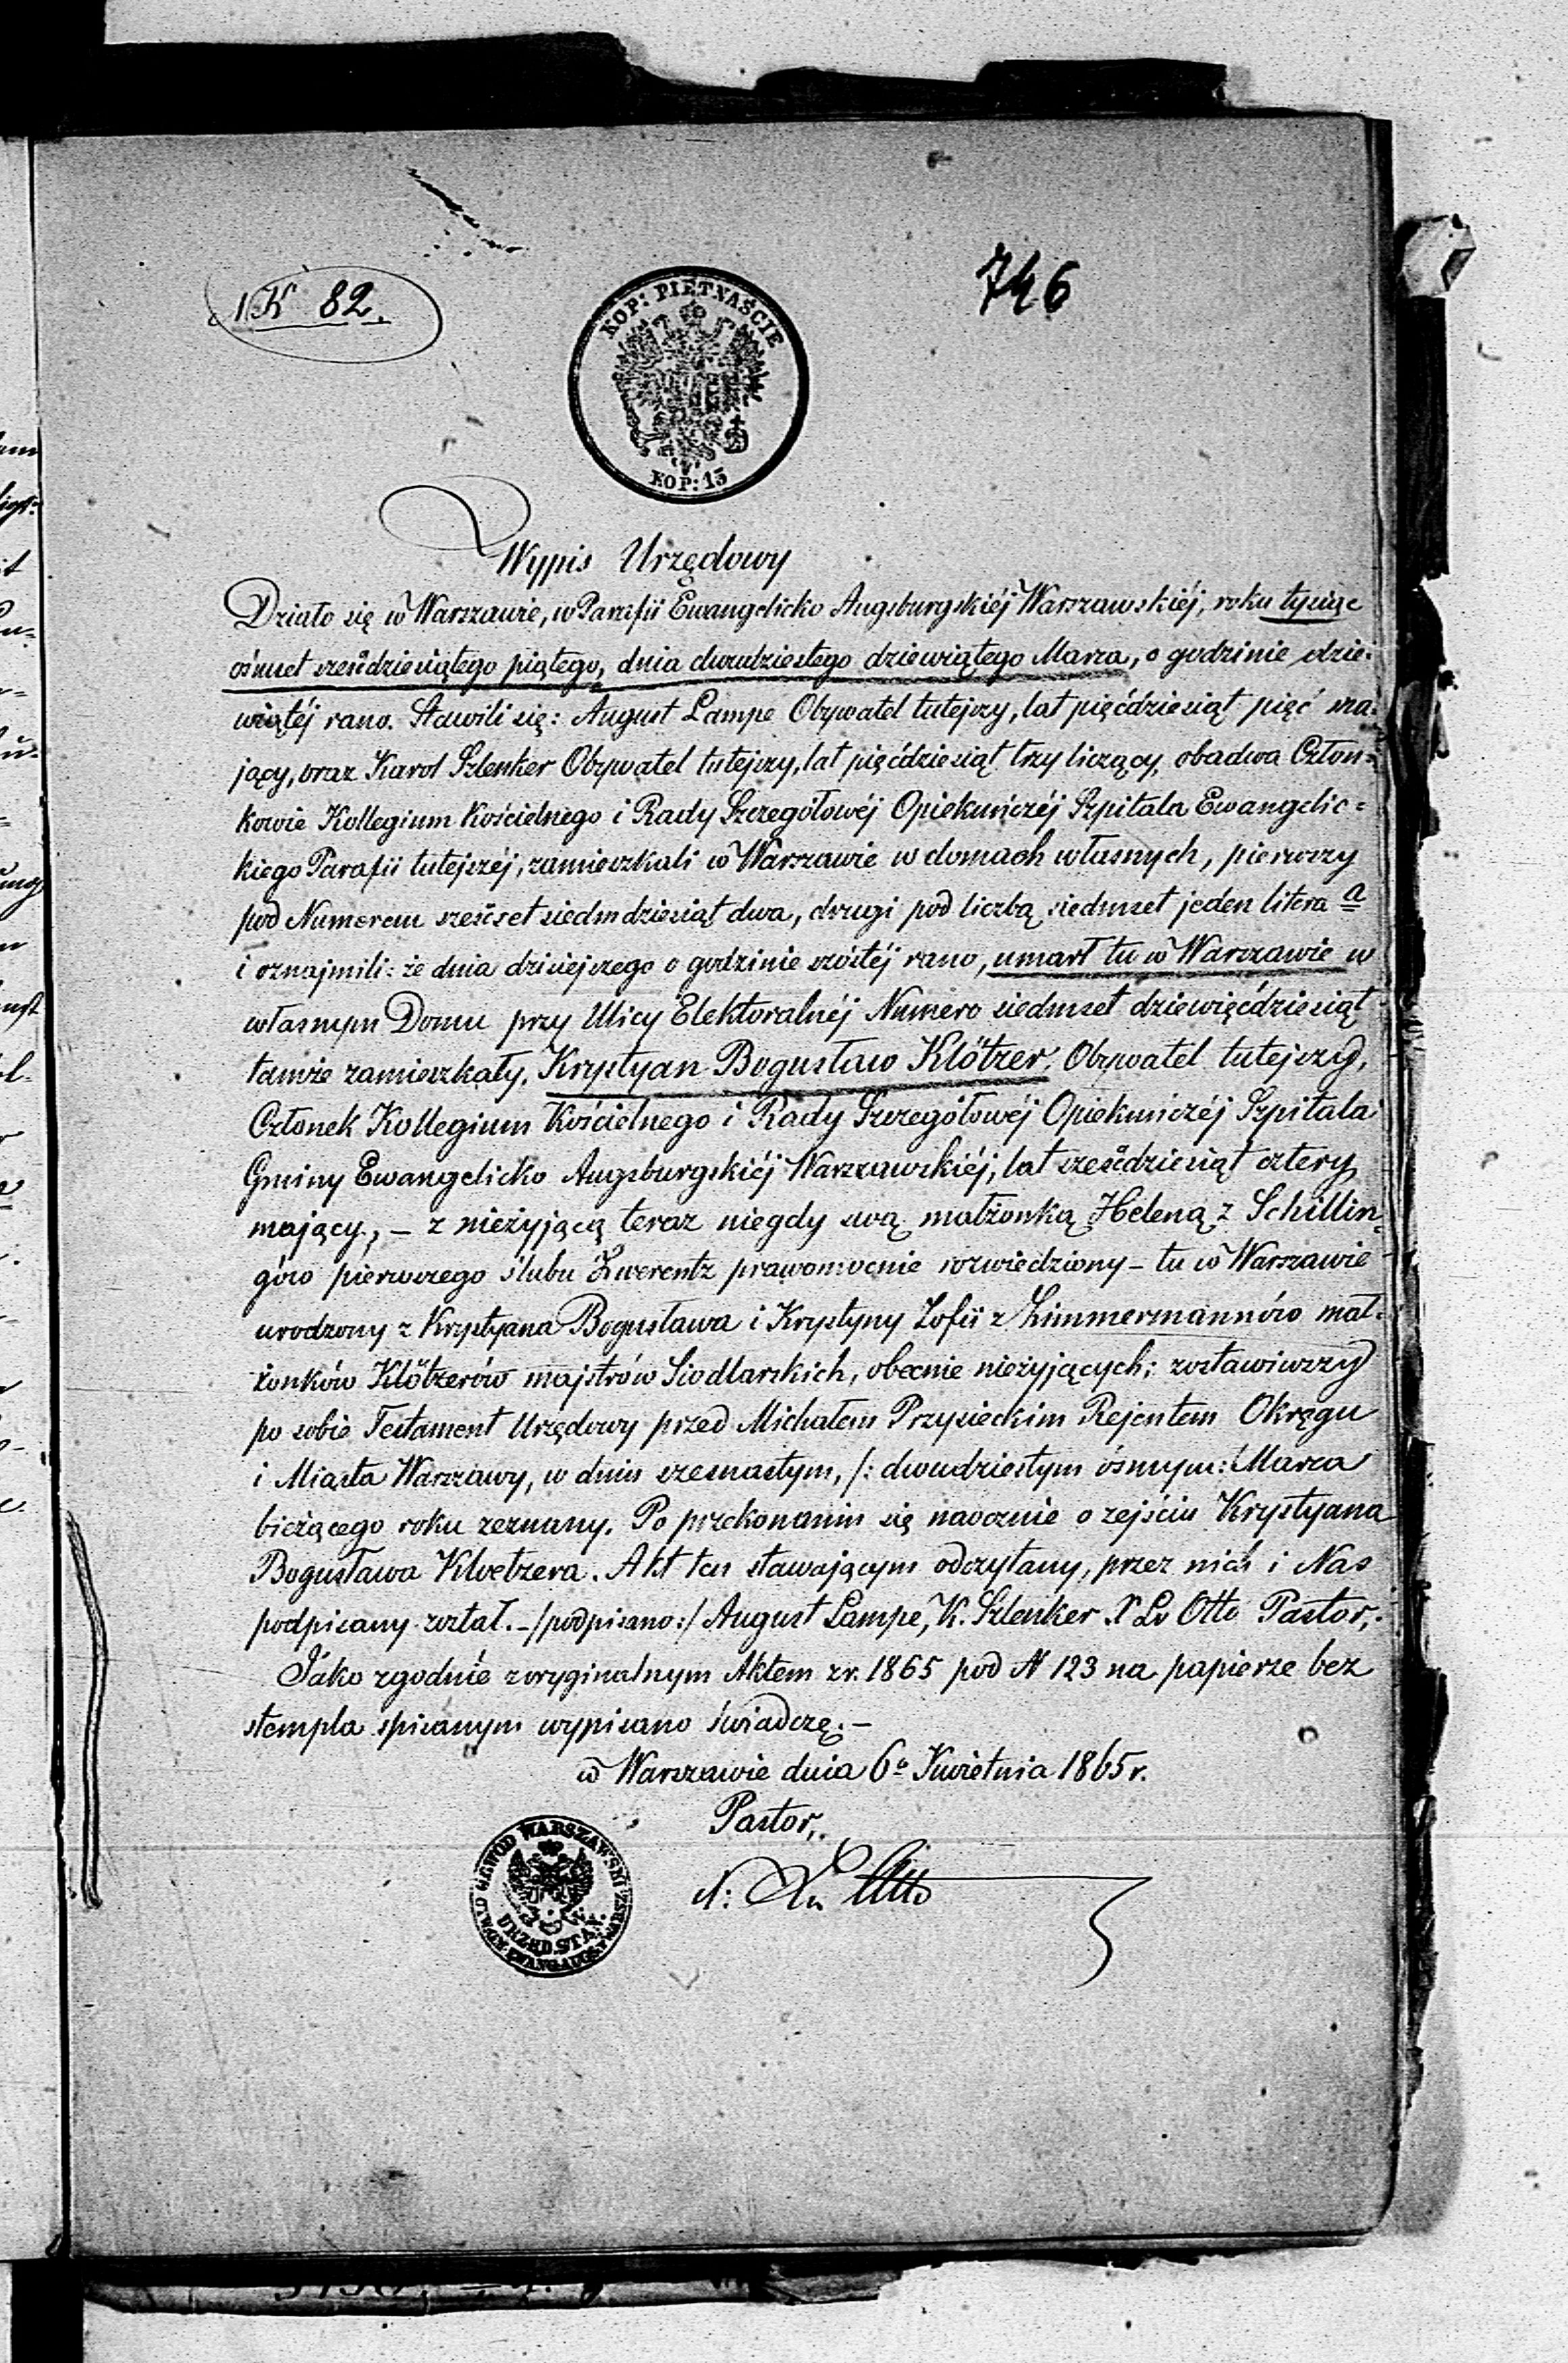 1K 82.
746
KOP: PIETNAŚCIE
KOP: 15
Wypis Urzędowy
Działo się w Warszawie, w Parafii Ewangelicko Augsburgskiéj Warszawskiéj, roku tysiąc
ośmset sześćdziesiątego piątego, dnia dwudziestego dziewiątego Marca, o godzinie dzie-
wiątéj rano. Stawili się: August Lampe Obywatel tutejszy, lat pięćdziesiąt pięć ma-
jący, oraz Karol Szlenker Obywatel tutejszy, lat pięćdziesiąt trzy liczący, obadwa Człon-
kowie Kollegium Kościelnego i Rady Szczegółowéj Opiekuńczéj Szpitala Ewangelic-
kiego Parafii tutejszéj, zamieszkali w Warszawie w domach własnych, pierwszy
pod Numerem sześćset siedmdziesiąt dwa, drugi pod liczbą siedmset jeden litera a
i oznajmili: że dnia dzisiejszego o godzinie szóstéj rano, umarł tu w Warszawie w
własnym Domu przy Ulicy Elektoralnéj Numero siedmset dziewięćdziesiąt
tamże zamieszkały, Krystyan Bogusław Klötzer, Obywatel tutejszy,
Członek Kollegium Kościelnego i Rady Szczegółowéj Opiekuńczéj Szpitala
Gminy Ewangelicko Augsburgskiéj Warszawskiéj, lat sześćdziesiąt cztery
mający, – z nieżyjącą teraz niegdy swą małżonką Heleną z Schillin-
gów pierwszego ślubu Zwerentz prawomocnie rozwiedziony – tu w Warszawie
urodzony z Krystyana Bogusława i Krystyny Zofii z Zimmermannów mał-
żonków Klötzerów majstrów Siodlarskich, obecnie nieżyjących; zostawiwszy
po sobie Testament Urzędowy przed Michałem Przysieckim Rejentem Okręgu
i Miasta Warszawy, w dniu szesnastym, /: dwudziestym ósmym :/ Marca
bieżącego roku zeznany. Po przekonaniu się naocznie o zejściu Krystyana
Bogusława Kloetzera. Akt ten stawającym odczytany, przez nich i Nas
podpisany został. – /podpisano:/ August Lampe, K. Szlenker X Lv Otto Pastor,.
Jako zgodnie z oryginalnym Aktem z r. 1865 pod N 123 na papierze bez
stempla spisanym wypisano świadczę. –
w Warszawie dnia 6º Kwietnia 1865 r.
Pastor,.
Otto
WARSZAWSKI
URZĘD. STAN.